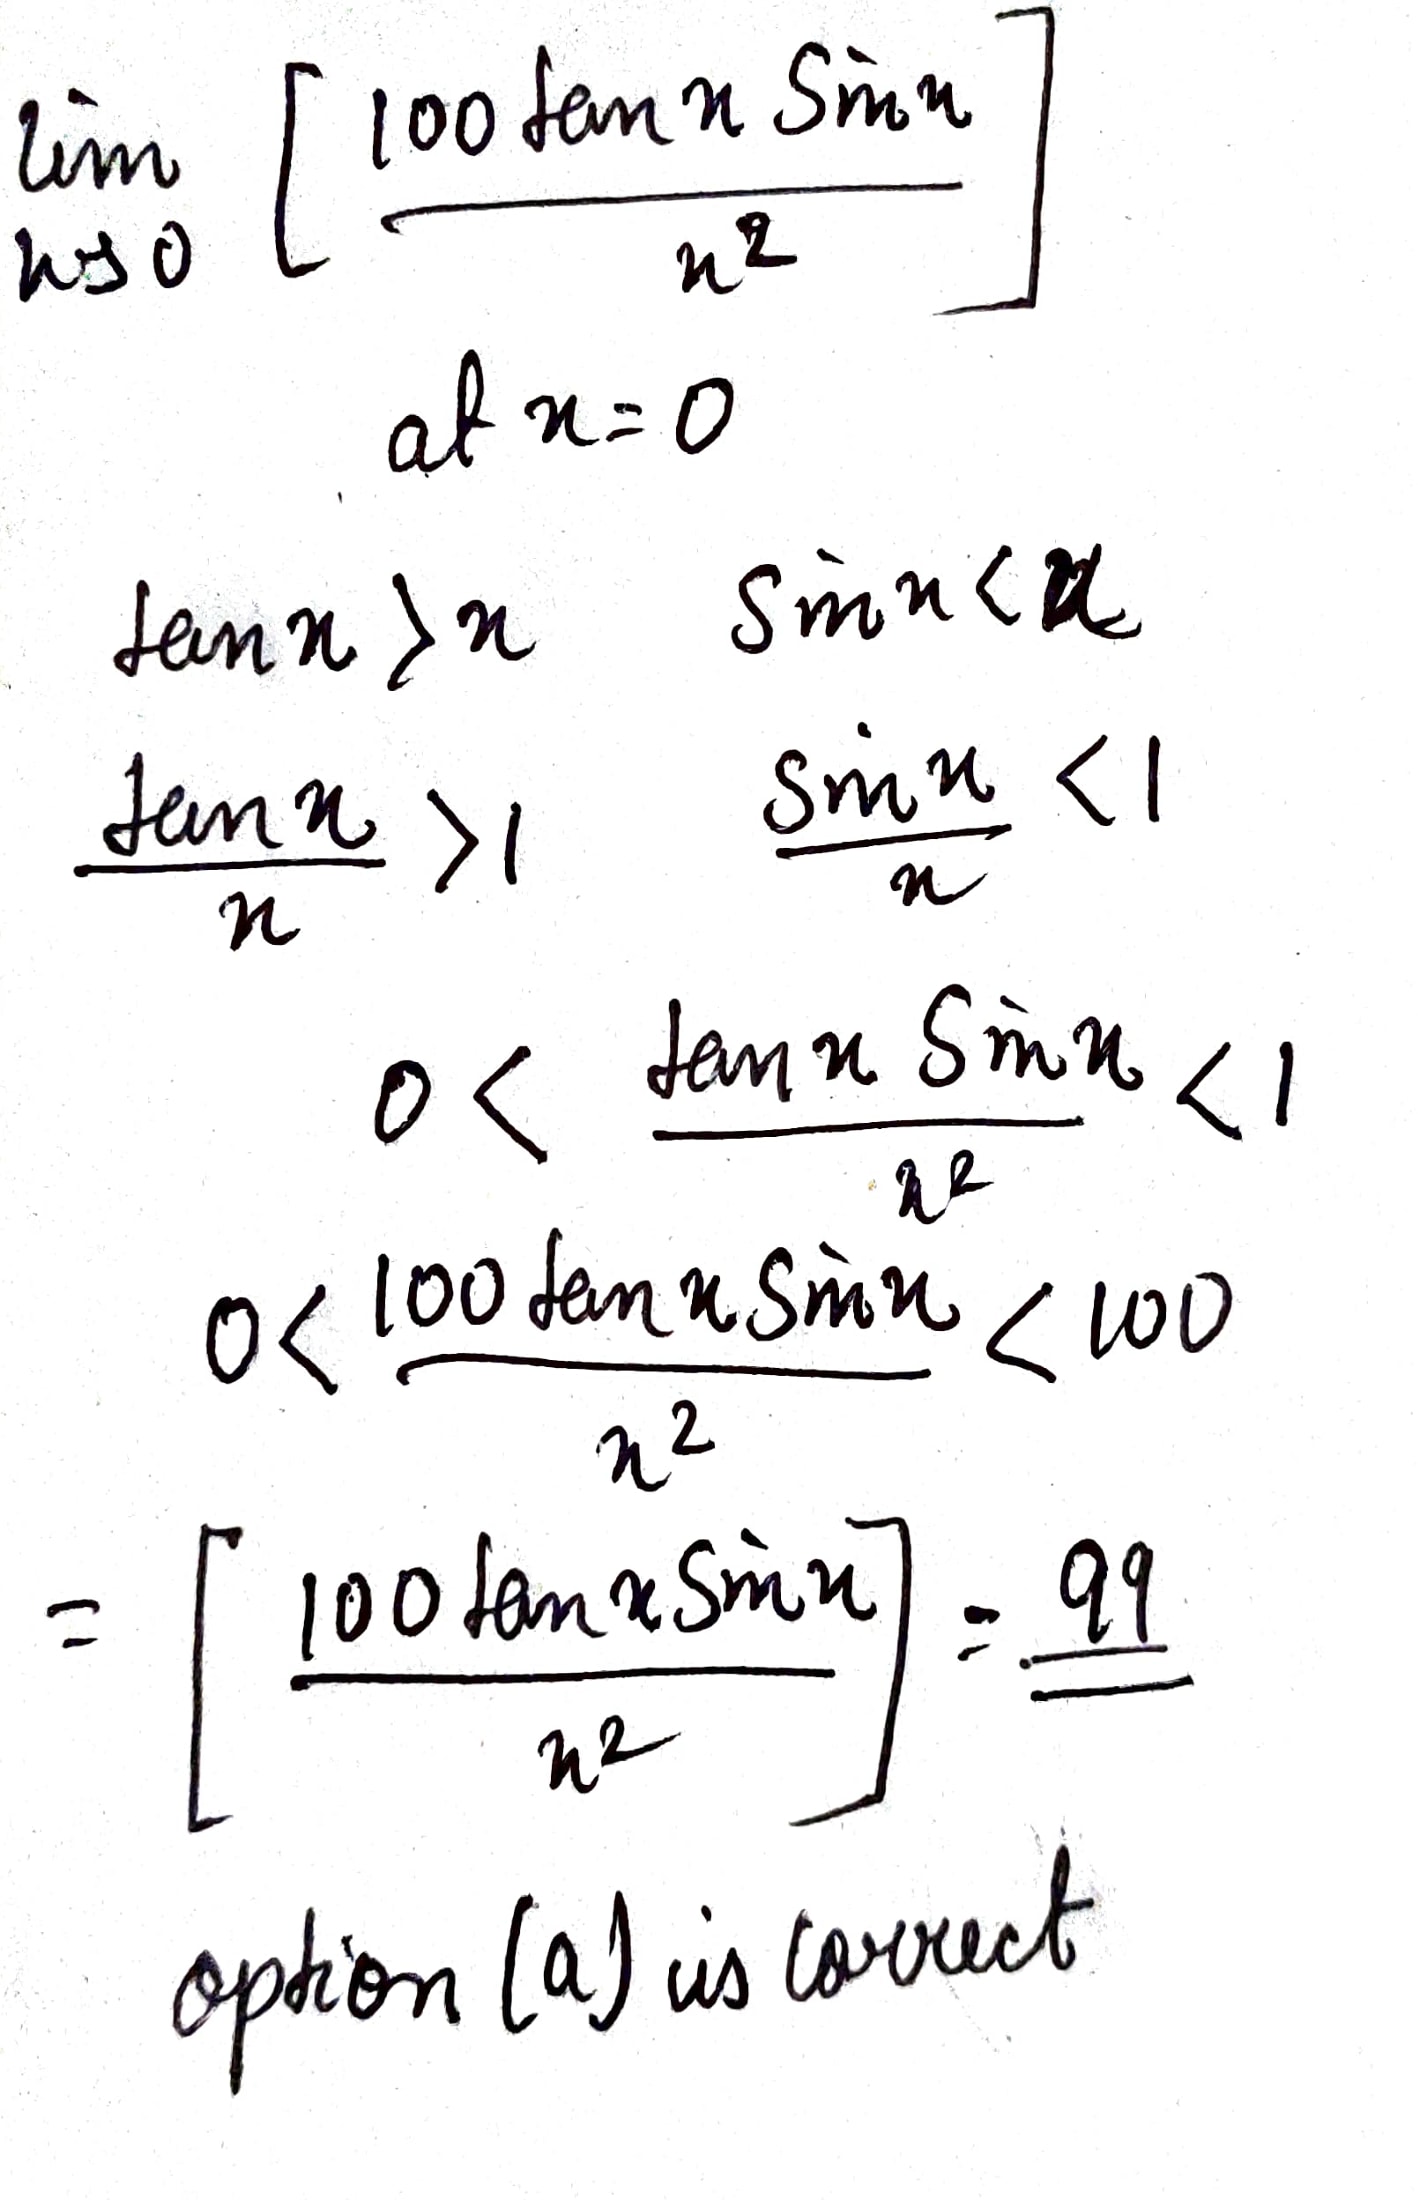 lim [ 100 tan x Sin x / x² ]
x→0
at x=0
tan x > x    Sin x < x
tan x / x > 1    Sin x / x < 1
0 < tan x Sin x / x² < 1
0 < 100 tan x Sin x / x² < 100
= [ 100 tan x Sin x / x² ] = 99
option (a) is correct